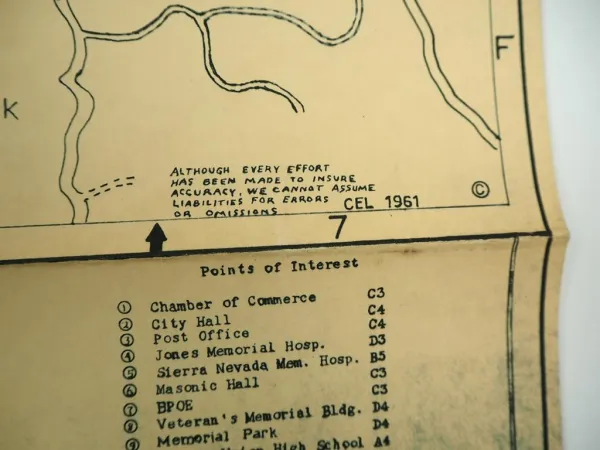 k
F
ALTHOUGH EVERY EFFORT
HAS BEEN MADE TO INSURE
ACCURACY, WE CANNOT ASSUME
LIABILITIES FOR ERRORS
OR OMISSIONS
CEL 1961
©
7
Points of Interest
1 Chamber of Commerce C3
2 City Hall C4
3 Post Office C4
4 Jones Memorial Hosp. D3
5 Sierra Nevada Mem. Hosp. B5
6 Masonic Hall C3
7 BPOE C3
8 Veteran's Memorial Bldg. D4
9 Memorial Park D4
High School A4